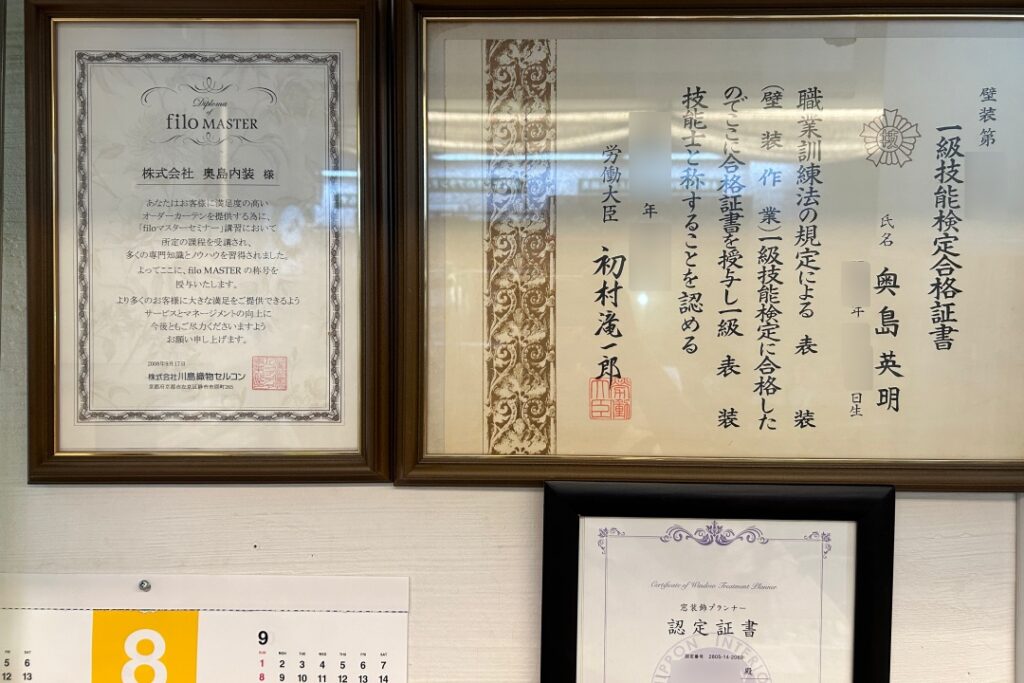 Diploma
of
filo MASTER
株式会社 奥島内装 様
あなたはお客様に満足度の高い
オーダーカーテンを提供する為に、
「filoマスターセミナー」講習において
所定の課程を受講され、
多くの専門知識とノウハウを習得されました。
よってここに、filo MASTER の称号を
授与いたします。
より多くのお客様に大きな満足をご提供できるよう
サービスとマネージメントの向上に
今後ともご尽力くださいますよう
お願い申し上げます。
株式会社川島織物セルコン
壁装第
一級技能検定合格証書
氏名 奥島英明
日生
職業訓練法の規定による 表 装
(壁装作業)一級技能検定に合格した
のでここに合格証書を授与し一級 表 装
技能士と称することを認める
年
労働大臣 初村滝一郎
労働
大臣
Certificate of Window Treatment Planner
窓装飾プランナー
認定証書
殿
NIPPON INTERIOR
FRI SAT
5 6
12 13
8
9
SUN MON TUE WED THU FRI SAT
1 2 3 4 5 6 7
8 9 10 11 12 13 14